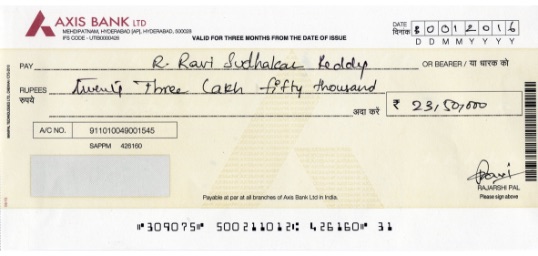 AXIS BANK LTD
MEHDIPATNAM, HYDERABAD [AP], HYDERABAD, 500028
IFS CODE - UTIB0000426
VALID FOR THREE MONTHS FROM THE DATE OF ISSUE
DATE
दिनांक
2016
D D M M Y Y Y Y
PAY R. Ravi Sudhakar Reddy OR BEARER / या धारक को
RUPEES Twenty Three Lakh fifty thousand
रुपये
अदा करें ₹ 23,50,000
A/C NO. 911010049001545
SAPPM 426160
RAJARSHI PAL
Please sign above
Payable at par at all branches of Axis Bank Ltd in India.
⑈309075⑈ 500211012⑆ 426160⑈ 31